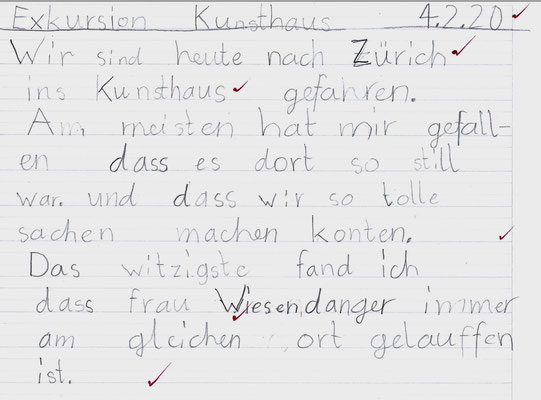 Exkursion Kunsthaus 4.2.20
Wir sind heute nach Zürich
ins Kunsthaus gefahren.
Am meisten hat mir gefall-
en dass es dort so still
war. und dass wir so tolle
sachen machen konten.
Das witzigste fand ich
dass frau Wiesendanger immer
am gleichen ort gelauffen
ist.